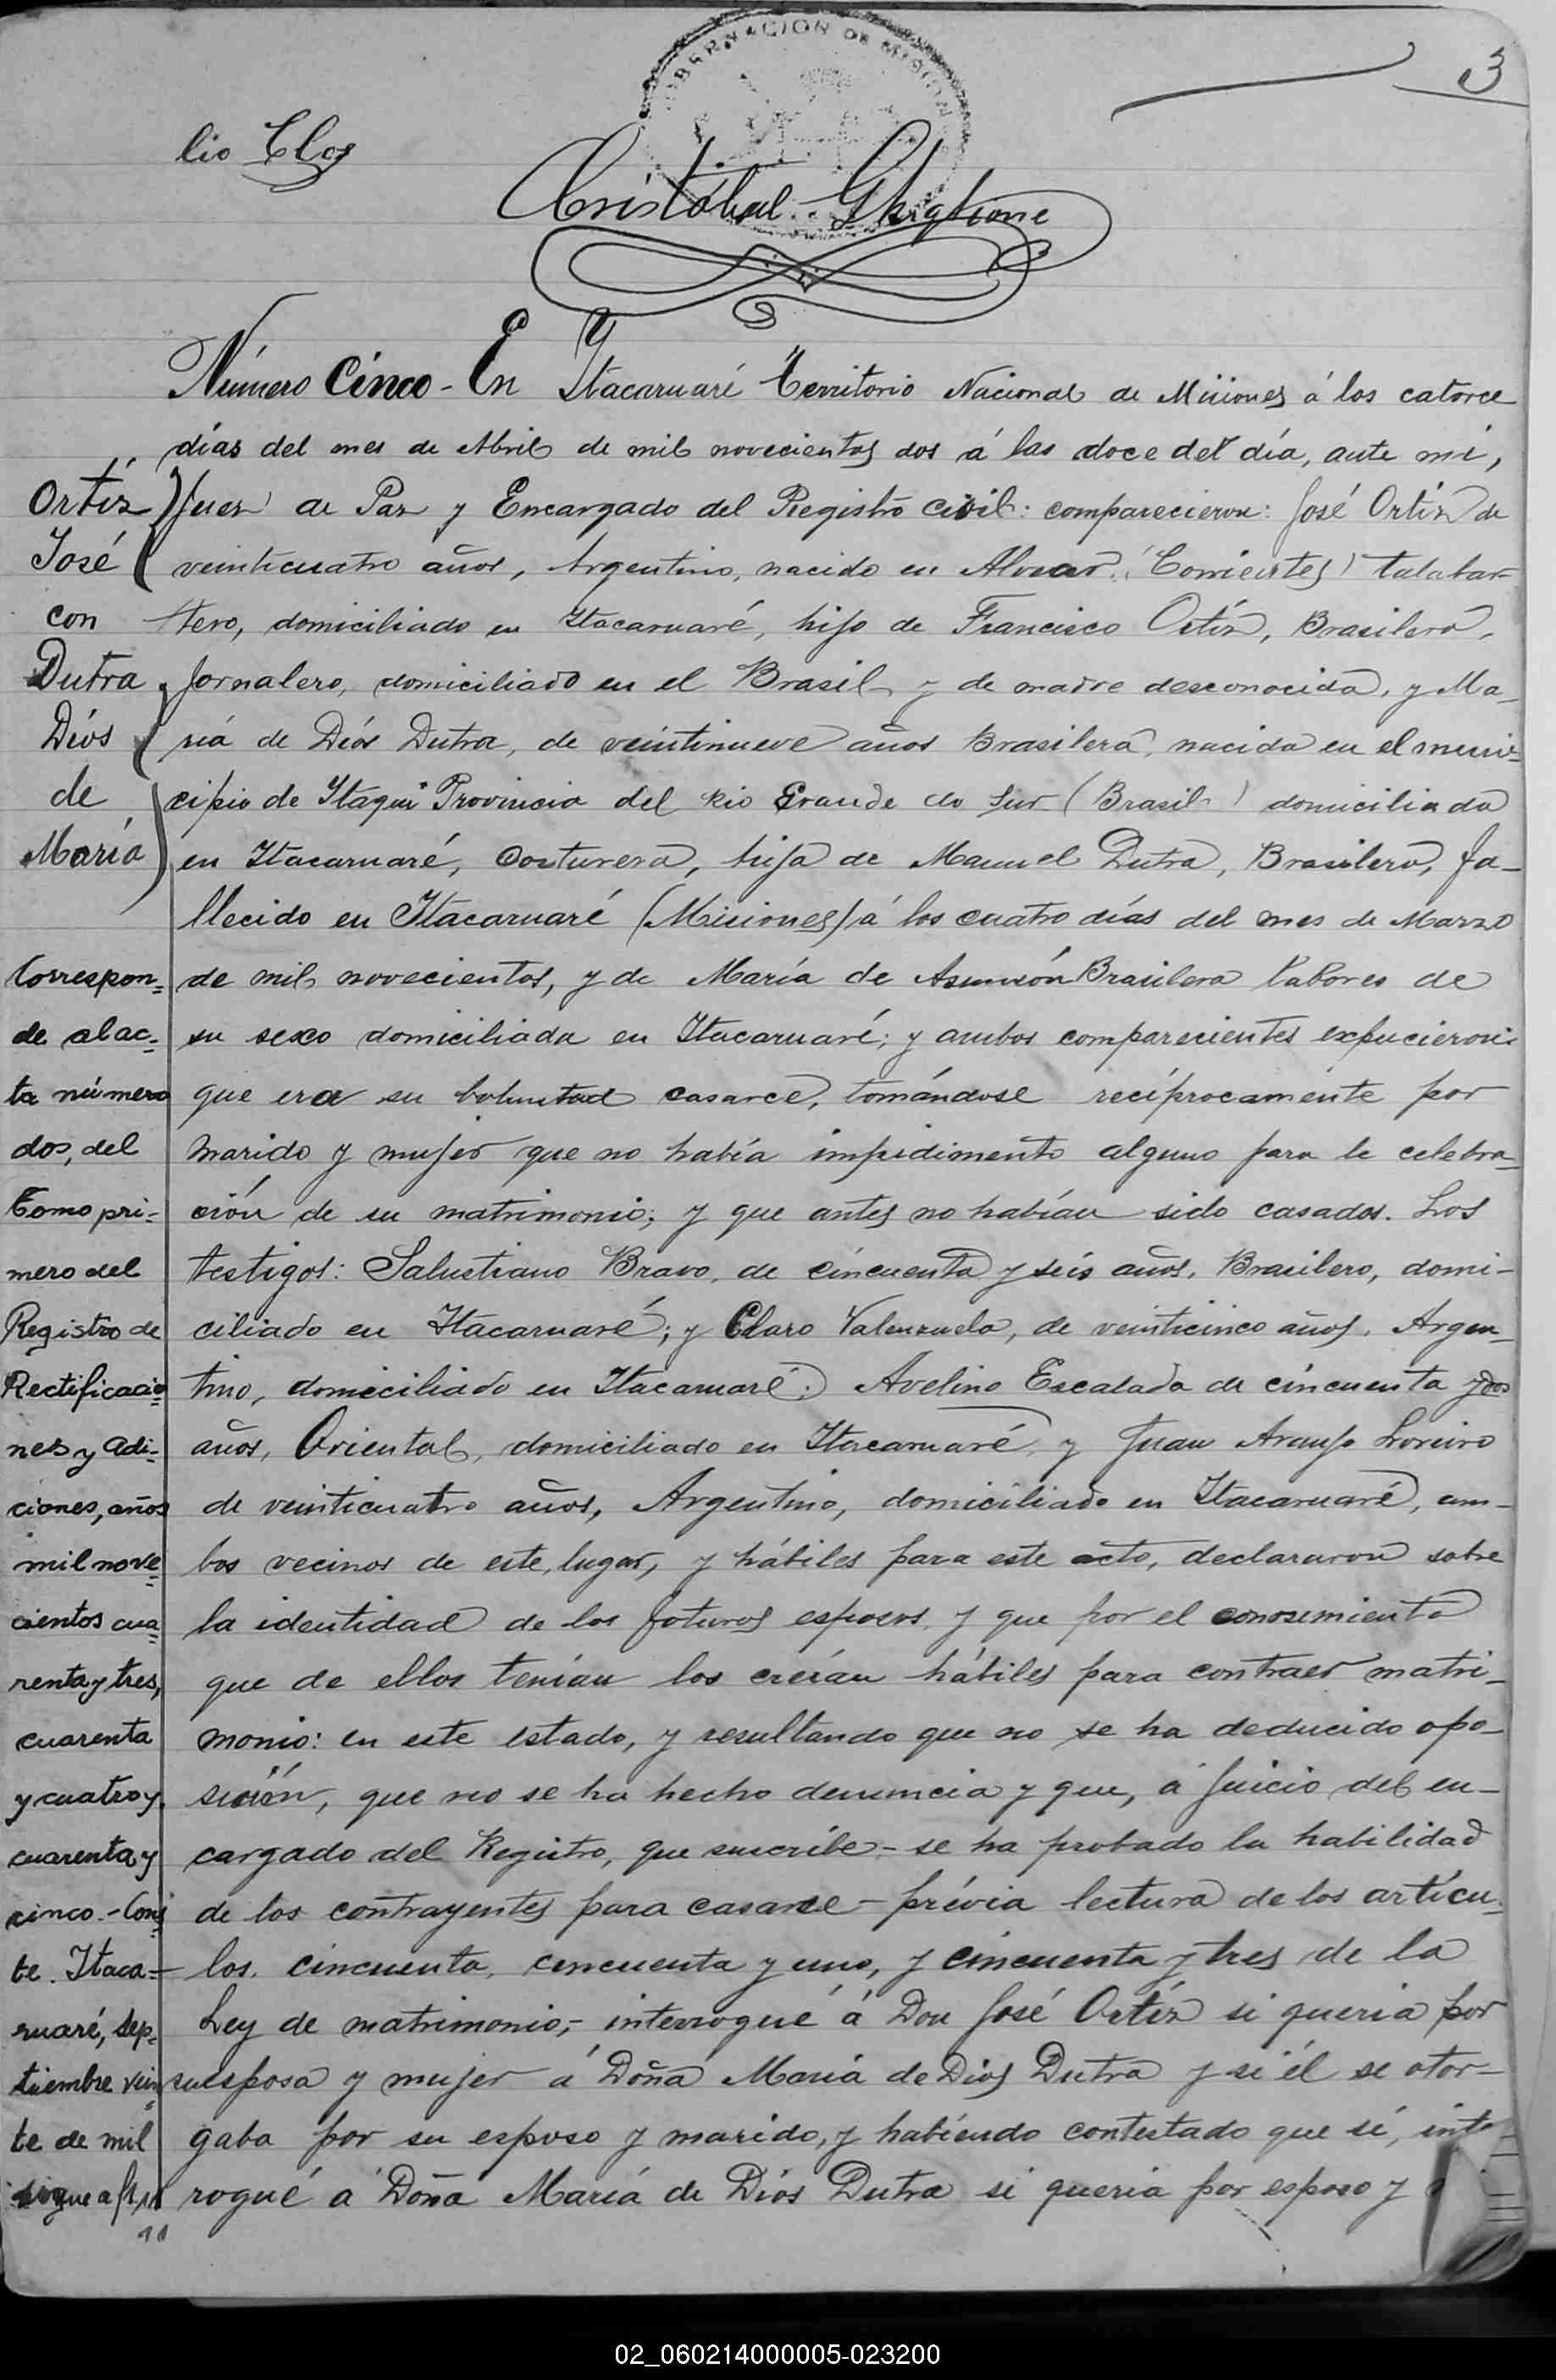 GOBERNACION DE MISIONES
3
lio Clos
Cristóbal Ghiglione
Número Cinco - En Itacaruaré Territorio Nacional de Misiones á los catorce
días del mes de Abril de mil novecientos dos á las doce del día, ante mi,
Juez de Paz y Encargado del Registro Civil: comparecieron: José Ortíz de
veinticuatro años, Argentino, nacido en Alvear (Corrientes) talabar-
tero, domiciliado en Itacaruaré, hijo de Francisco Ortíz, Brasilero,
Jornalero, domiciliado en el Brasil y de madre desconocida, y Ma-
riá de Diós Dutra, de veintinueve años Brasilera, nacida en el muni-
cipio de Itaqui Provincia del Rio Grande do Sur (Brasil) domiciliada
en Itacaruaré, Costurera, hija de Manuel Dutra, Brasilero, fa-
llecido en Itacaruaré (Misiones) á los cuatro días del mes de Marzo
de mil novecientos, y de María de Asunsión Brasilera labores de
su sexo domiciliada en Itacaruaré; y ambos comparecientes expucieron:
que era su boluntad casarce, tomándose recíprocamente por
marido y mujer que no había impidimento alguno para le celebra-
ción de su matrimonio; y que antes no habían sido casados. Los
testigos: Salustiano Bravo, de cincuenta y seis años, Brasilero, domi-
ciliado en Itacaruaré; y Claro Valenzuela, de veinticinco años, Argen-
tino, domiciliado en Itacaruaré; Avelino Escalada de cincuenta y dos
años, Oriental, domiciliado en Itacaruaré, y Juan Araujo Loreiro
de veinticuatro años, Argentino, domiciliado en Itacaruaré, am-
bos vecinos de este lugar, y hábiles para este acto, declararon sobre
la identidad de los foturos esposos, y que por el conosimiento
que de ellos tenían los creían hábiles para contraer matri-
monio: en este estado, y resultando que no se ha deducido opo-
sición, que no se ha hecho denuncia y que, á juicio del en-
cargado del Registro, que suscribe - se ha probado la habilidad
de los contrayentes para casarce - prévia lectura de los artícu-
los, cincuenta, cincuenta y uno, y cincuenta y tres de la
Ley de matrimonio, - interrogué á Don José Ortíz si queria por
su esposa y mujer á Doña María de Dios Dutra y si él se otor-
gaba por su esposo y marido, y habiendo contestado que sí, inte
rogué á Doña María de Diós Dutra si queria por esposo y
Ortíz
José
con
Dutra
Diós
de
María
Correspon-
de al ac-
ta número
dos, del
Tomo pri-
mero del
Registro de
Rectificacio
nes y Adi-
ciones, años
mil nove-
cientos cua-
renta y tres,
cuarenta
y cuatro y
cuarenta y
cinco.- Cons
te. Itaca-
ruaré, Sep-
tiembre vein-
te de mil
sigue a fs
02_060214000005-023200